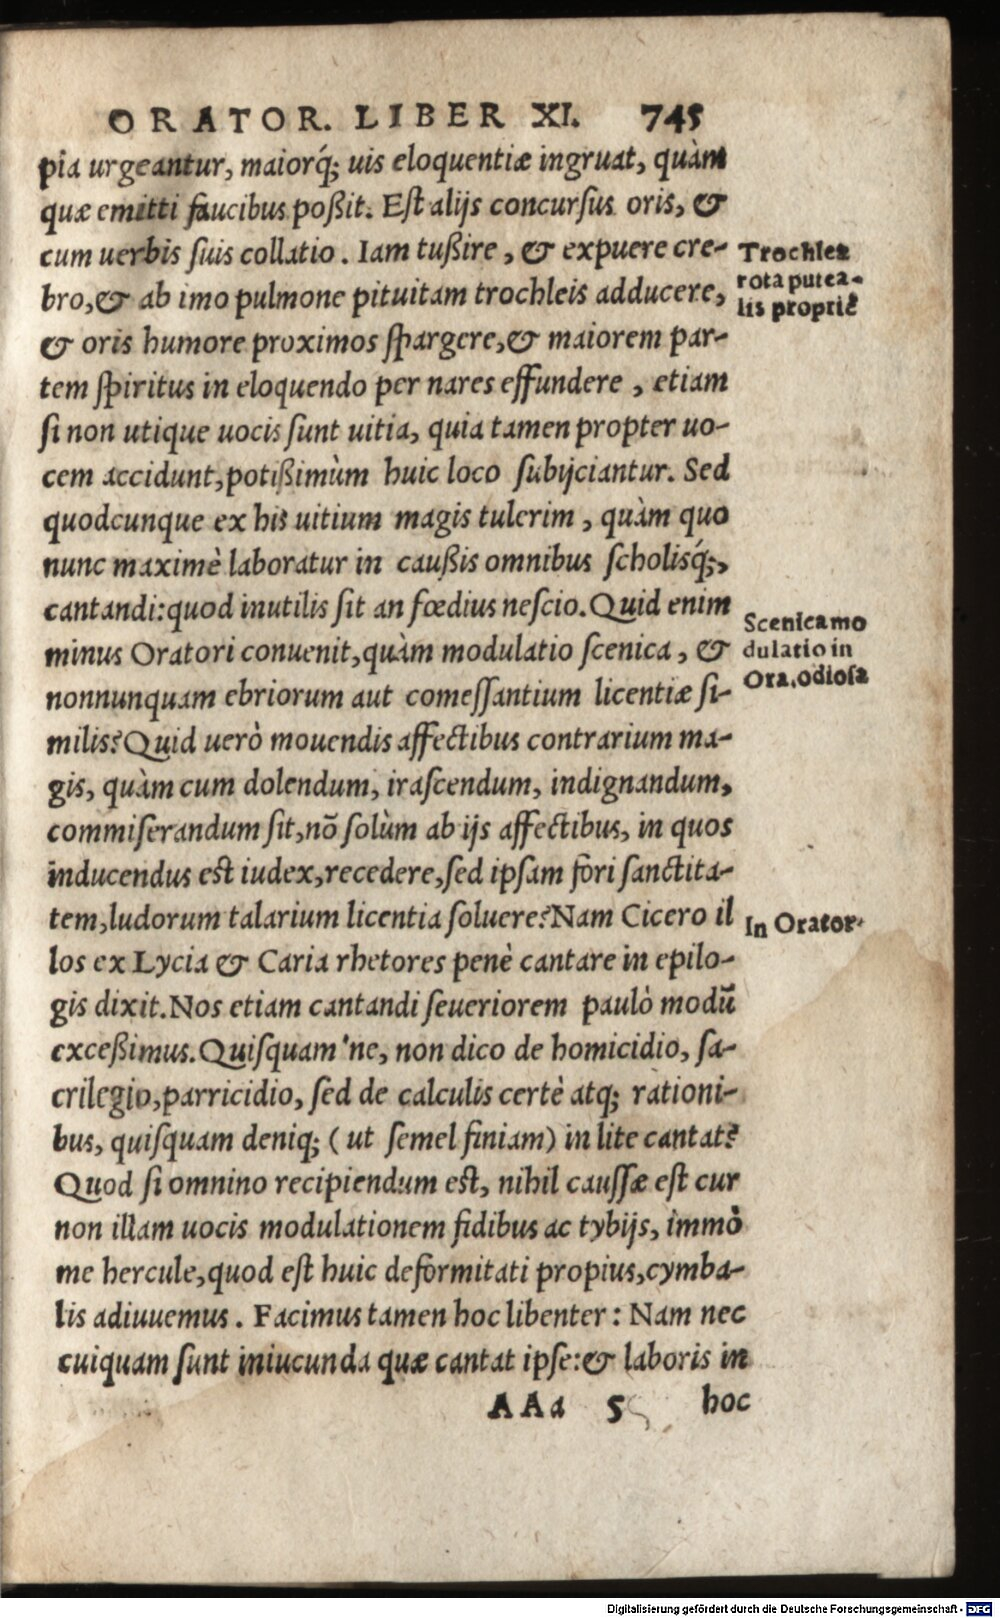 ORATOR. LIBER XI. 745
pia urgeantur, maiorq́; uis eloquentiæ ingruat, quàm
quæ emitti faucibus poßit. Est alijs concursus oris, &
cum uerbis suis collatio. Iam tußire, & expuere cre-
bro, & ab imo pulmone pituitam trochleis adducere,
& oris humore proximos spargere, & maiorem par-
tem spiritus in eloquendo per nares effundere, etiam
si non utique uocis sunt uitia, quia tamen propter uo-
cem accidunt, potißimùm huic loco subijciantur. Sed
quodcunque ex his uitium magis tulerim, quàm quo
nunc maximè laboratur in caußis omnibus scholisq́;,
cantandi: quod inutilis sit an fœdius nescio. Quid enim
minus Oratori conuenit, quàm modulatio scenica, &
nonnunquam ebriorum aut comessantium licentiæ si-
milis? Quid uerò mouendis affectibus contrarium ma-
gis, quàm cum dolendum, irascendum, indignandum,
commiserandum sit, nõ solùm ab ijs affectibus, in quos
inducendus est iudex, recedere, sed ipsam fori sanctita-
tem, ludorum talarium licentia soluere? Nam Cicero il
los ex Lycia & Caria rhetores penè cantare in epilo-
gis dixit. Nos etiam cantandi seueriorem paulò modũ
exceßimus. Quisquam'ne, non dico de homicidio, sa-
crilegio, parricidio, sed de calculis certè atq; rationi-
bus, quisquam deniq; (ut semel finiam) in lite cantat?
Quod si omnino recipiendum est, nihil caussæ est cur
non illam uocis modulationem fidibus ac tybijs, immò
me hercule, quod est huic deformitati propius, cymba-
lis adiuuemus. Facimus tamen hoc libenter: Nam nec
cuiquam sunt iniucunda quæ cantat ipse: & laboris in
AAa 5 hoc
Trochleæ
rota putea-
lis propriè
Scenica mo
dulatio in
Ora. odiosa
In Orator.
Digitalisierung gefördert durch die Deutsche Forschungsgemeinschaft - DFG